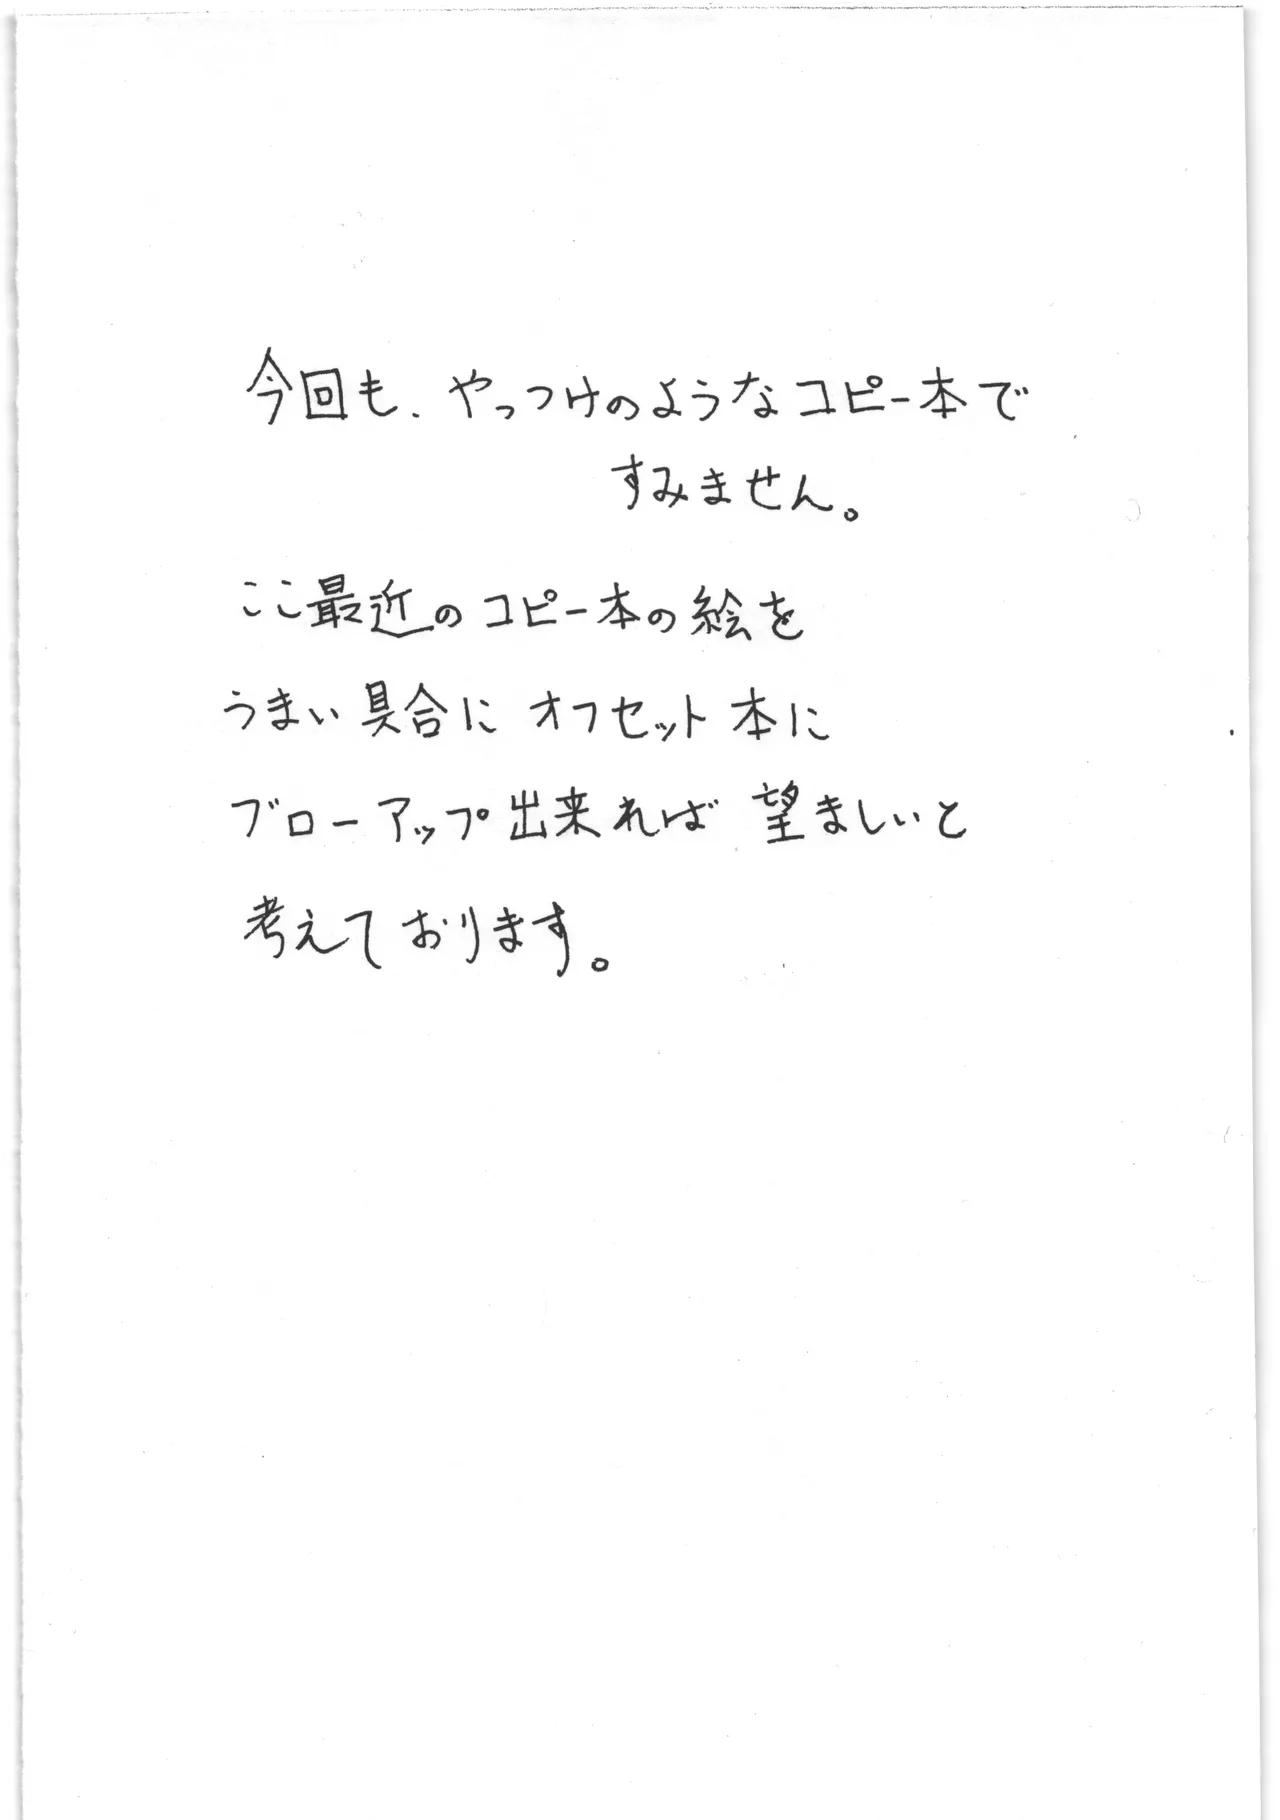 今回も、やっつけのようなコピー本で
すみません。
ここ最近のコピー本の絵を
うまい具合にオフセット本に
ブローアップ出来れば望ましいと
考えております。